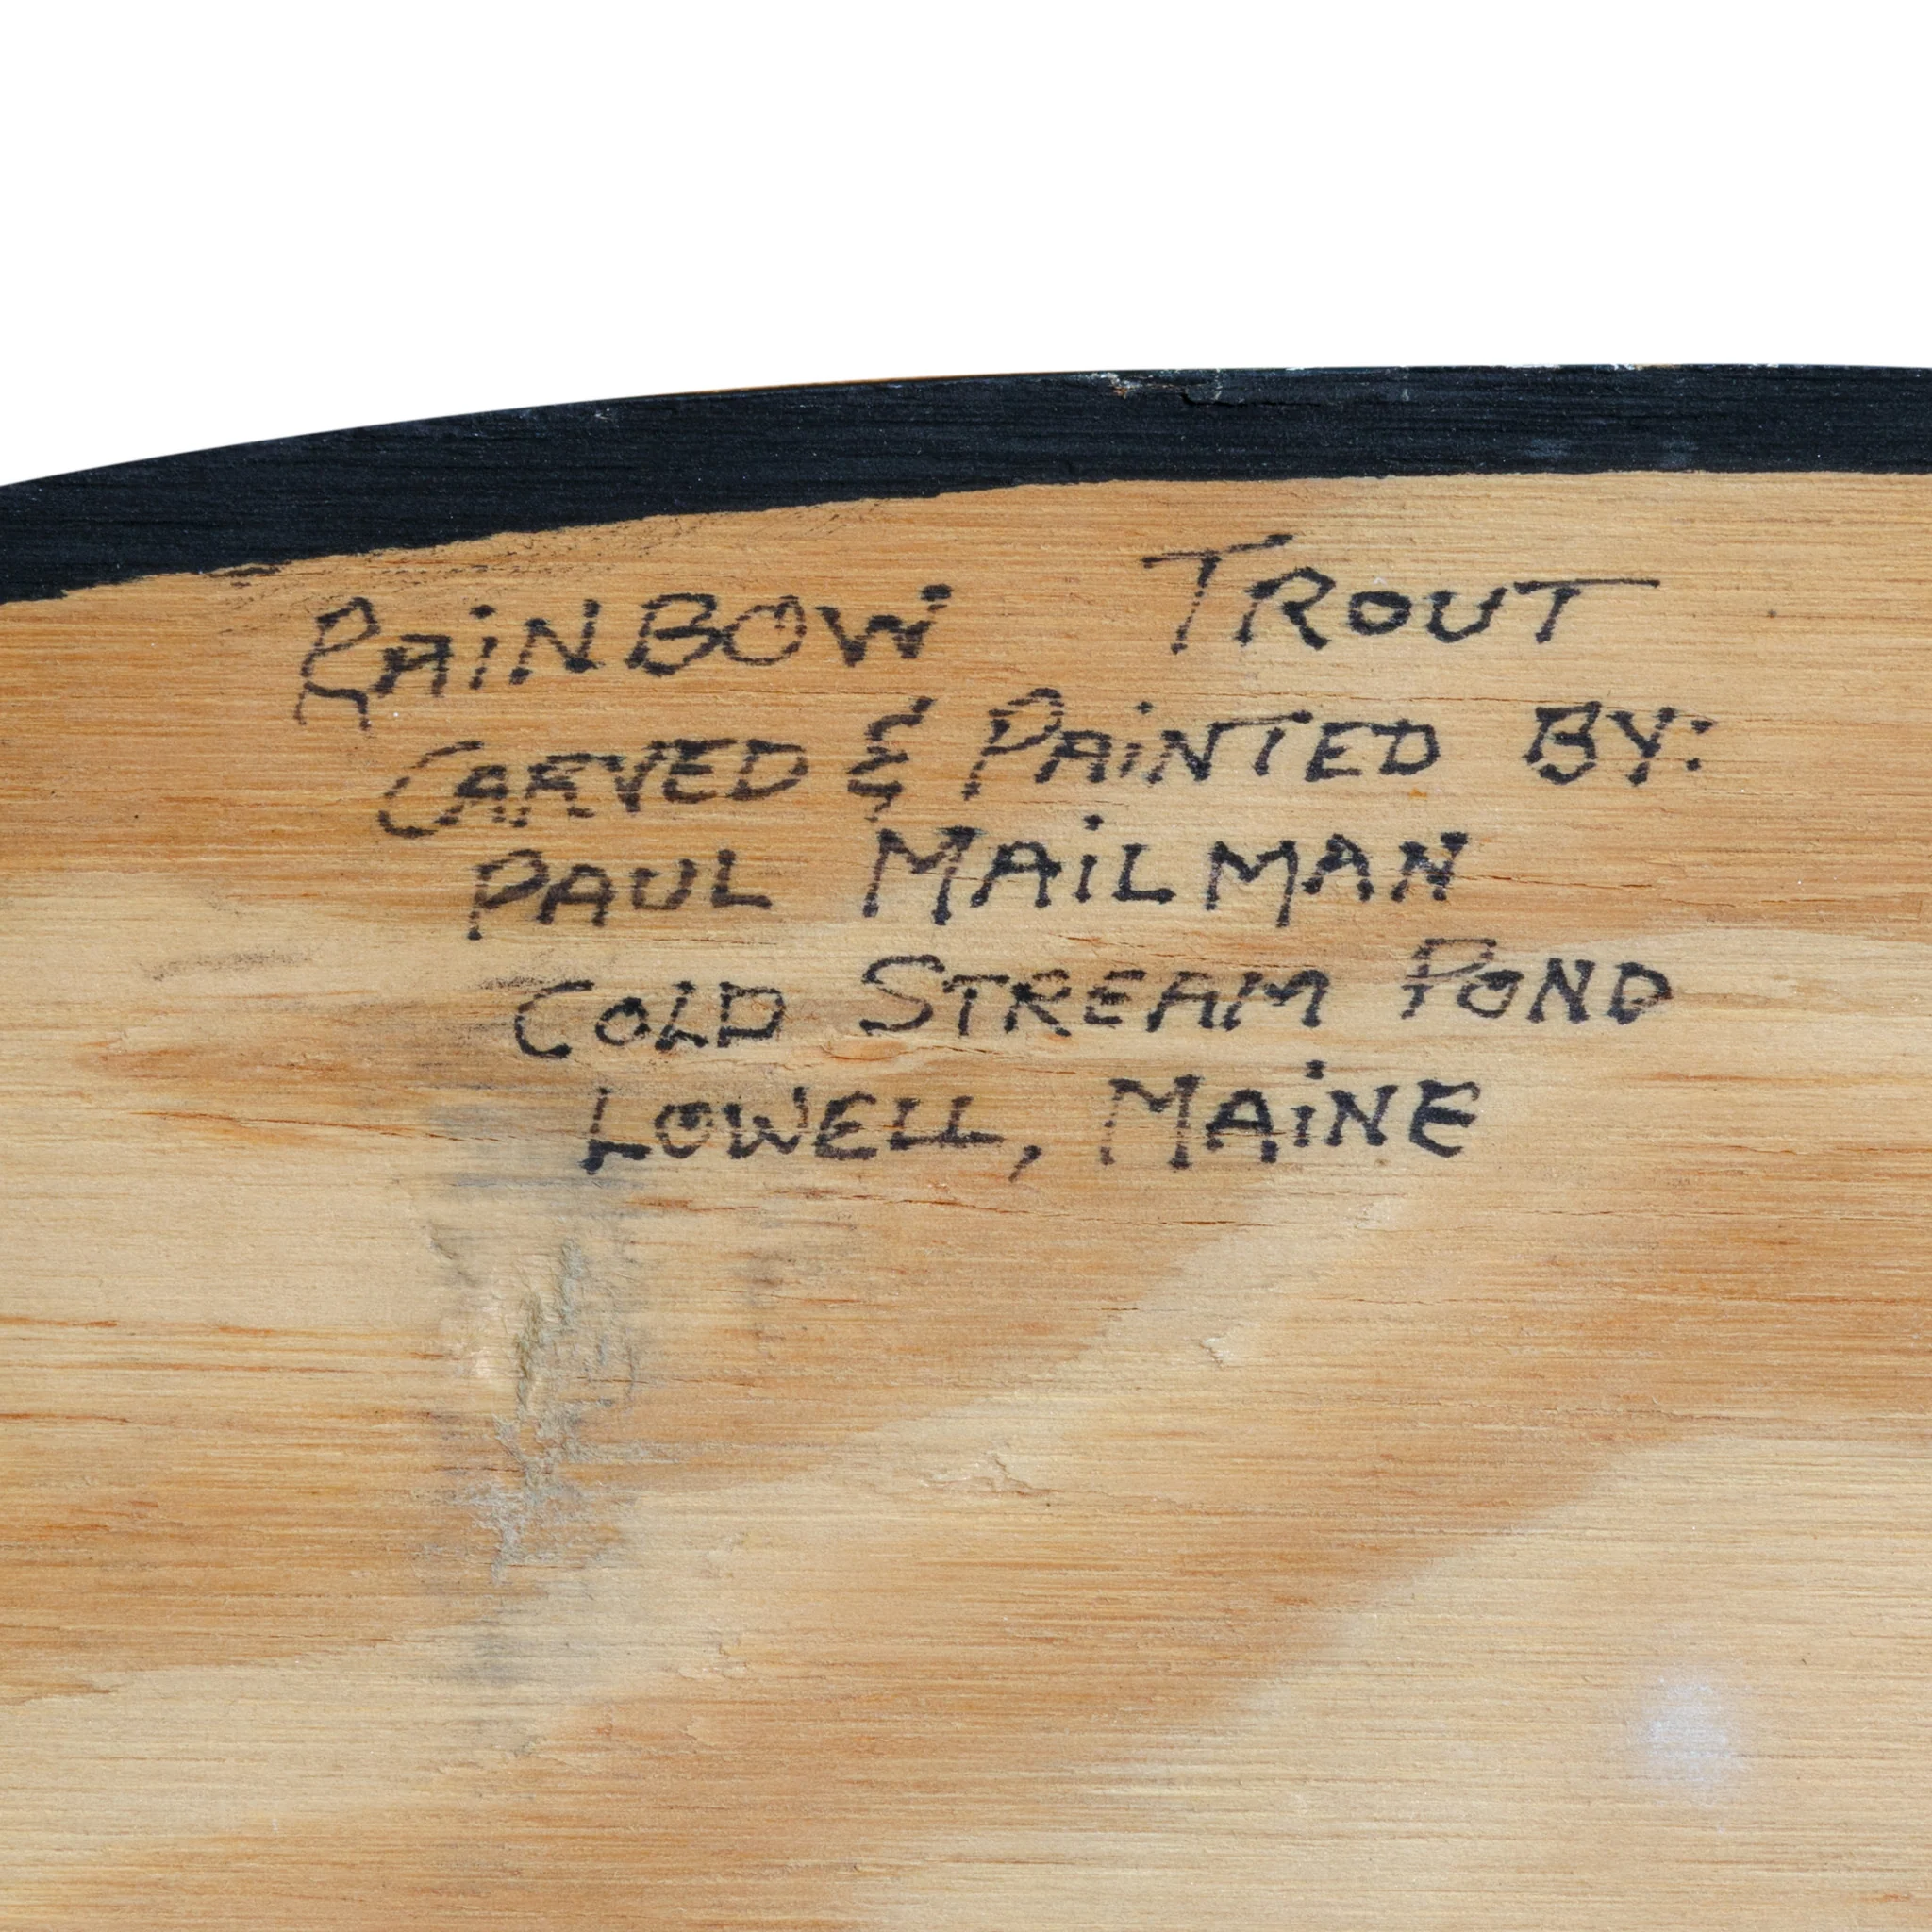 RAiNBOW TROUT
CARVED & PAiNTED BY:
PAUL MAiLMAN
COLD STREAM POND
LOWELL, MAiNE